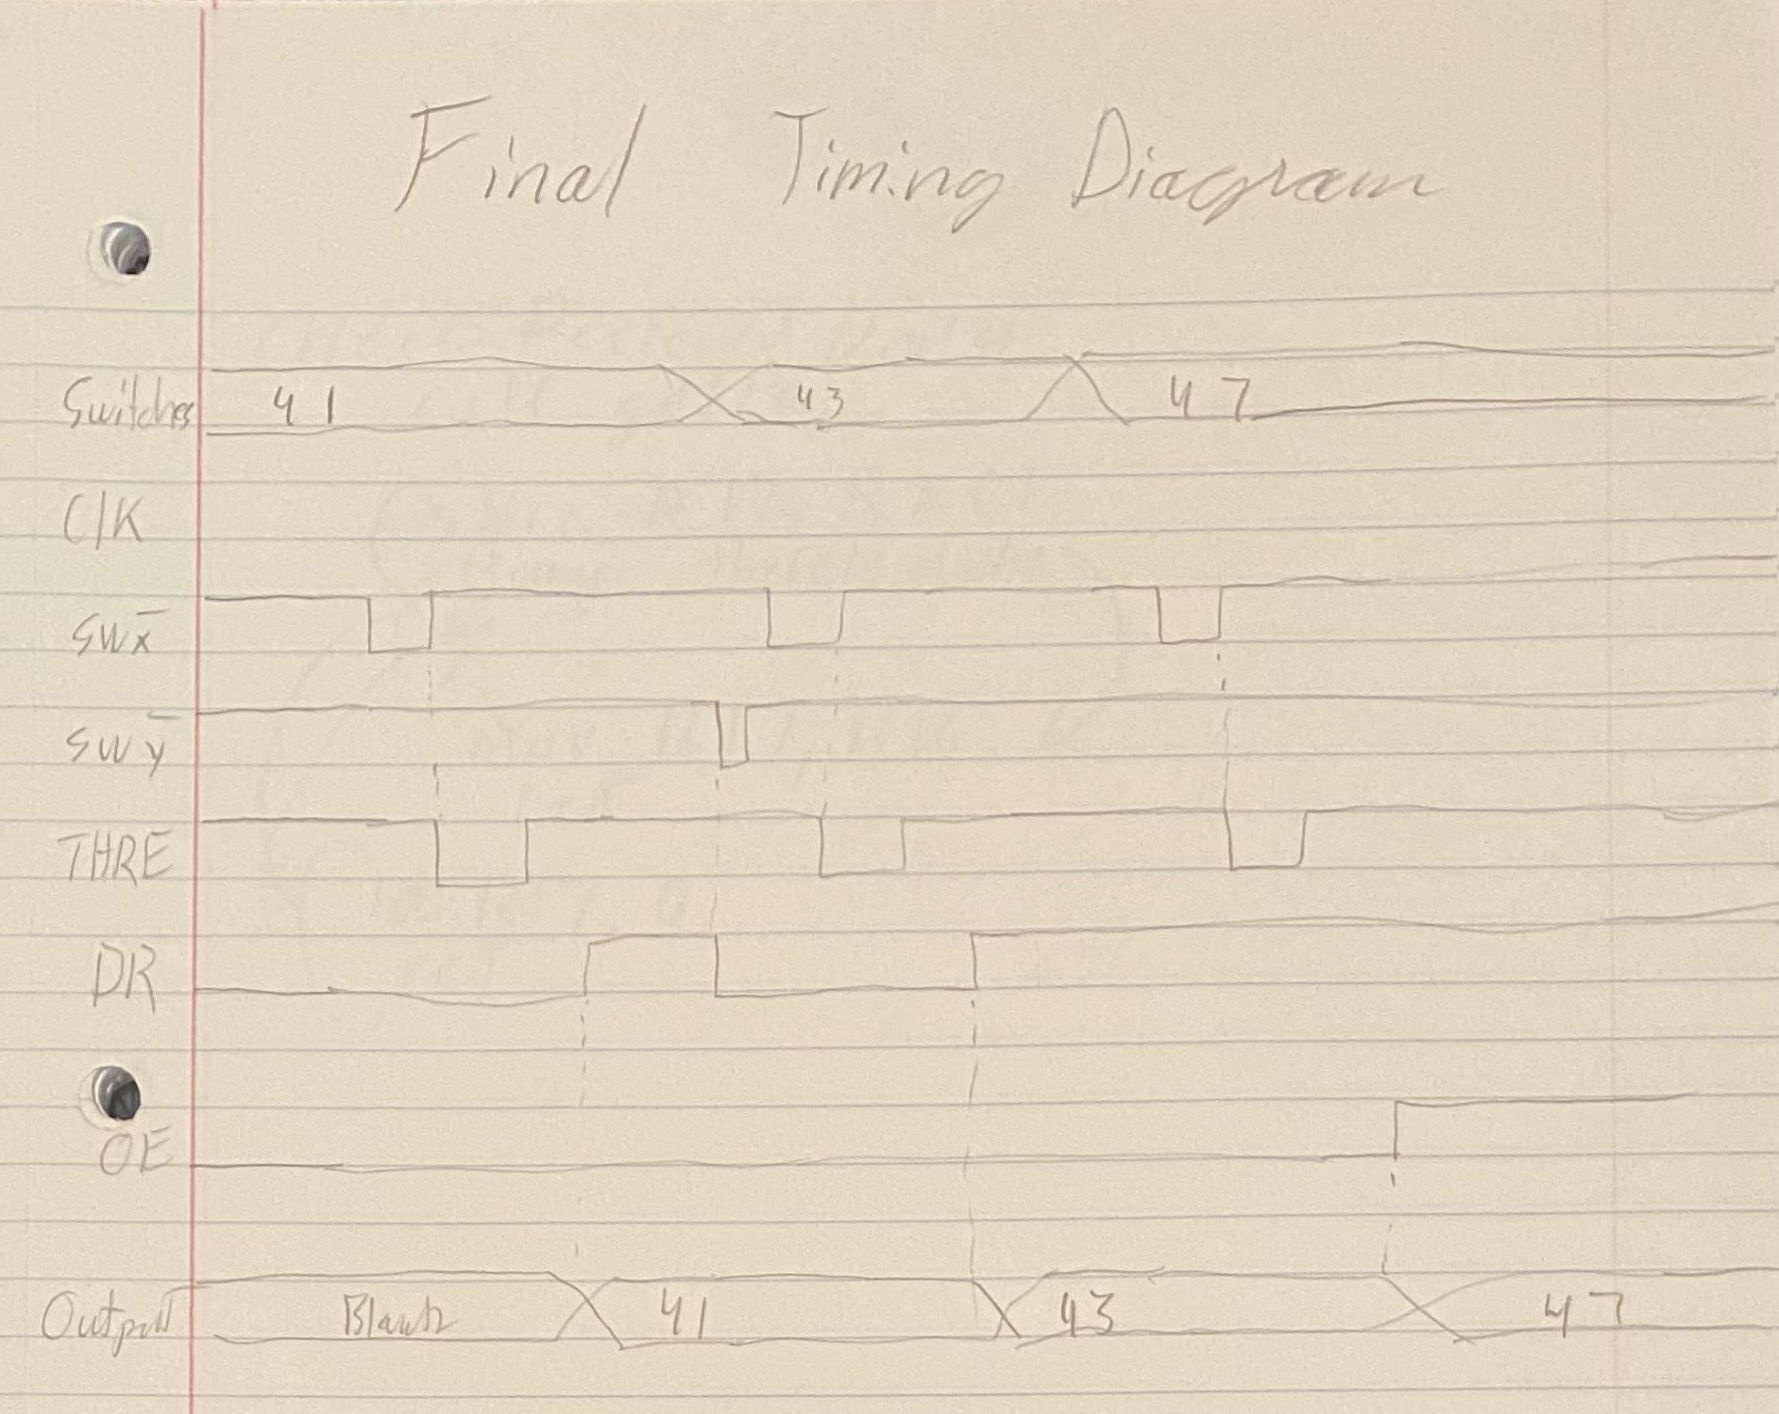 Final Timing Diagram
Switches 41 43 47
Clk
SWX̅
SWY̅
THRE
DR
OE
Output Blank 41 43 47